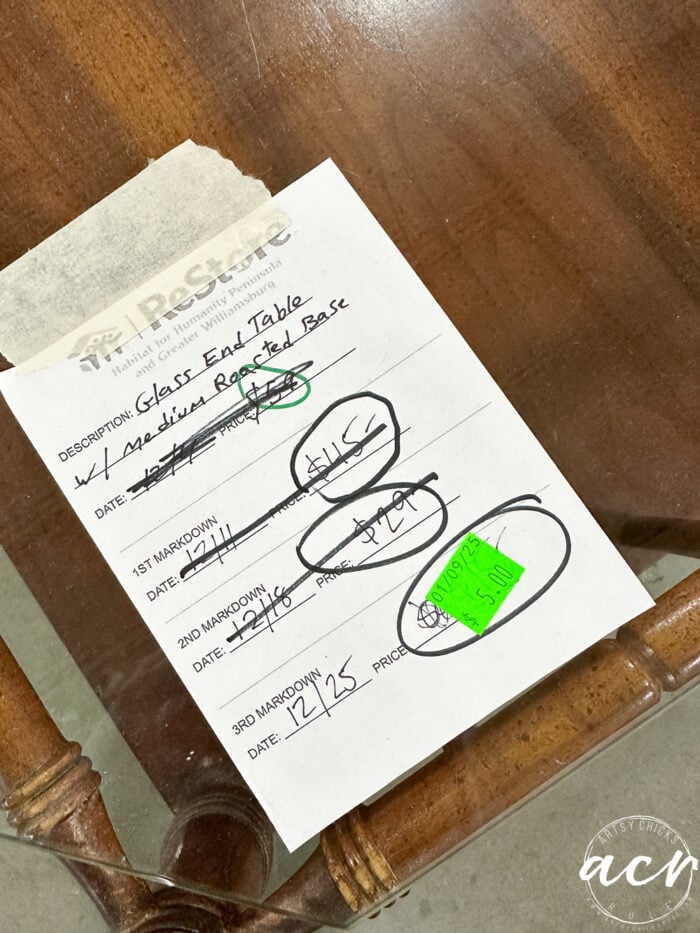 ReStore
Habitat for Humanity Peninsula
and Greater Williamsburg
DESCRIPTION: Glass End Table
w/ Medium Roasted Base
DATE: PRICE: $59
1ST MARKDOWN
DATE: 12/11 PRICE: $45
2ND MARKDOWN
DATE: 12/18 PRICE: $29
3RD MARKDOWN
DATE: 12/25 PRICE
01/09/25
$ 5.00
ARTSY CHICKS
acr
RULE